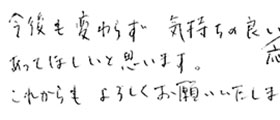 今後も変わらず 気持ちの良い
応
あってほしいと思います。
これからも よろしくお願いいたしま